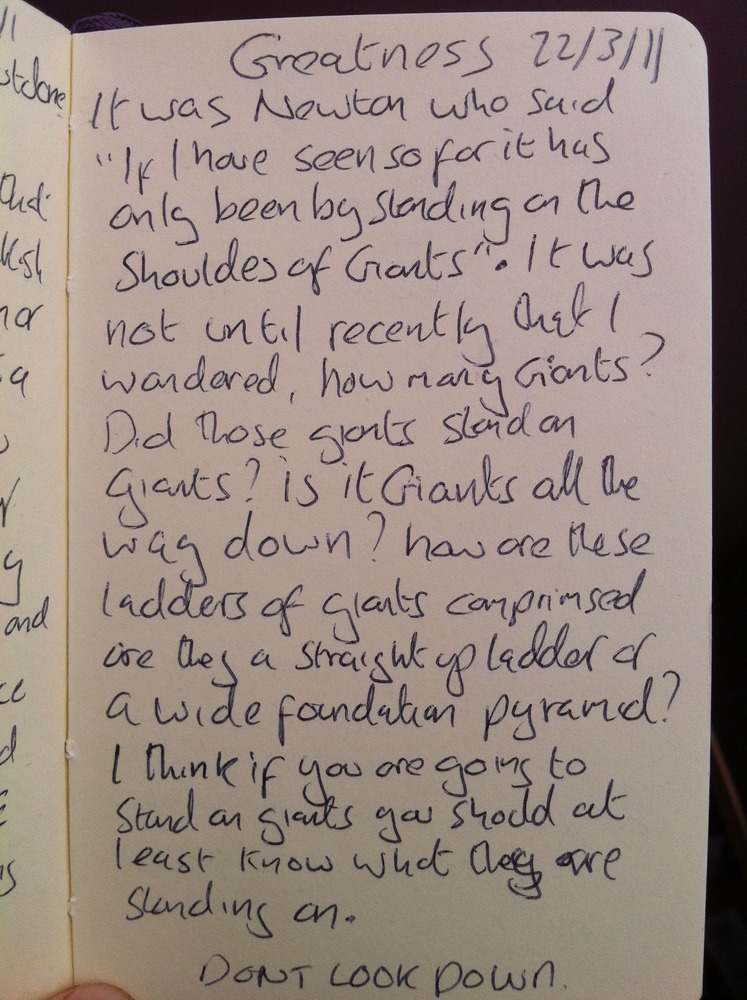 Greatness 22/3/11
It was Newton who said
"If I have seen so far it has
only been by standing on the
shouldes of Giants". It was
not until recently that I
wondered, how many Giants?
Did those giants stand on
giants? is it Giants all the
way down? how are these
ladders of giants comprimsed
are they a straight up ladder or
a wide foundation pyramid?
I think if you are going to
stand on giants you should at
least know what they are
standing on.
DONT LOOK DOWN.